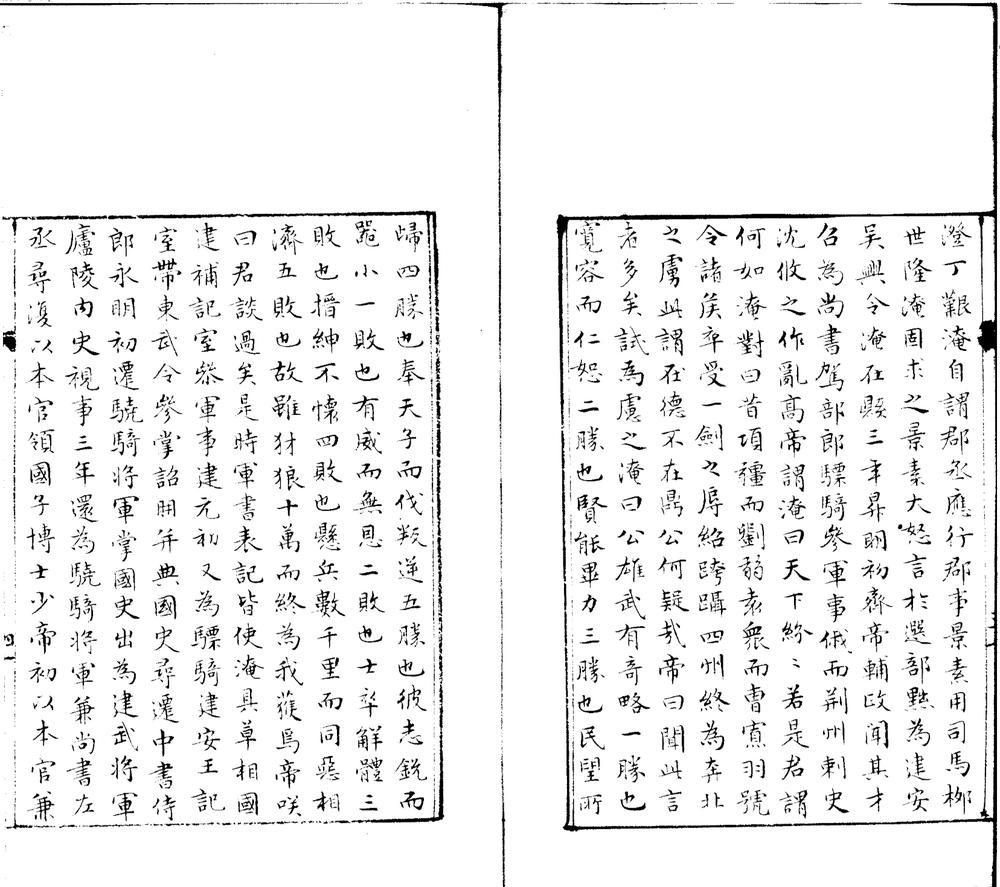 澄丁艱淹自謂郡丞應行郡事景素用司馬柳
世隆淹固求之景素大怒言於選部黜為建安
吳興令淹在縣三年昇明初齊帝輔政聞其才
召為尚書駕部郎驃騎參軍事俄而荆州刺史
沈攸之作亂高帝謂淹曰天下紛〻若是君謂
何如淹對曰昔項彊而劉弱袁衆而曹寡羽號
令諸侯卒受一劍之辱紹跨躡四州終為奔北
之虜此謂在德不在鼎公何疑哉帝曰聞此言
者多矣試為慮之淹曰公雄武有奇略一勝也
寬容而仁恕二勝也賢能畢力三勝也民望所
歸四勝也奉天子而伐叛逆五勝也彼志銳而
器小一敗也有威而無恩二敗也士卒解體三
敗也搢紳不懷四敗也懸兵數千里而同惡相
濟五敗也故雖豺狼十萬而終為我獲焉帝咲
曰君談過矣是時軍書表記皆使淹具草相國
建補記室叅軍事建元初又為驃騎建安王記
室帶東武令參掌詔冊并典國史尋遷中書侍
郎永明初遷驍騎將軍掌國史出為建武將軍
廬陵內史視事三年還為驍騎將軍兼尚書左
丞尋復以本官領國子博士少帝初以本官兼